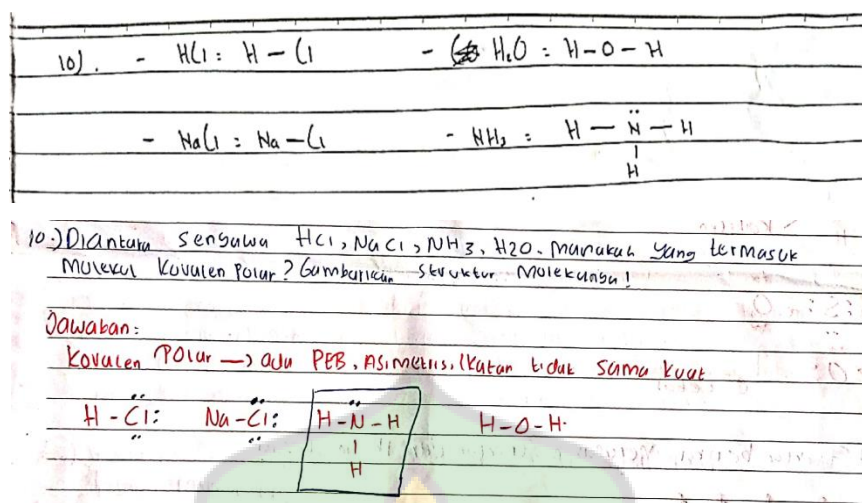 10). - HCl : H - Cl - H₂O : H-O-H
- NaCl : Na-Cl - NH₃ : H - N̈ - H
|
H
10.) Diantara senyawa HCl, NaCl, NH3, H2O. manakah yang termasuk
molekul kovalen polar? Gambarkan struktur molekulnya!
Jawaban:
Kovalen Polar → ada PEB, Asimetris, Ikatan tidak sama kuat
H - Cl: Na - Cl: H - N̈ - H H-O-H.
|
H